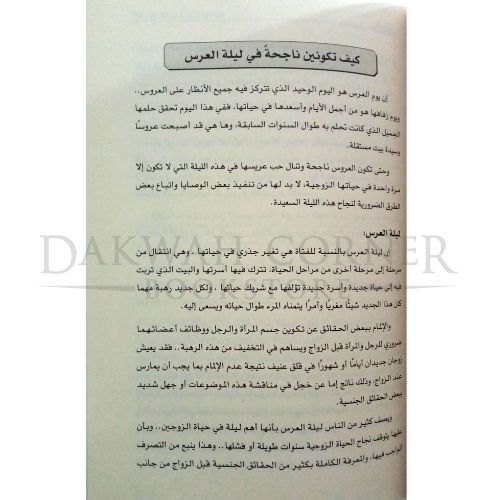 كيف تكونين ناجحةً في ليلة العرس
إن يوم العرس هو اليوم الوحيد الذي تتركز فيه جميع الأنظار على العروس..
ويوم زفافها هو من أجمل الأيام وأسعدها في حياتها، ففي هذا اليوم تحقق حلمها
الجميل الذي كانت تحلم به طوال السنوات السابقة، وها هي قد أصبحت عروسًا
وسيدة بيت مستقلة.
وحتى تكون العروس ناجحة وتنال حب عريسها في هذه الليلة التي لا تكون إلا
مرة واحدة في حياتها الزوجية، لا بد لها من تنفيذ بعض الوصايا واتباع بعض
الطرق الضرورية لنجاح هذه الليلة السعيدة.
ليلة العرس:
إن ليلة العرس بالنسبة للفتاة هي تغير جذري في حياتها، وهي انتقال من
مرحلة إلى مرحلة أخرى من مراحل الحياة، تترك فيها أسرتها والبيت الذي تربت
فيه إلى حياة جديدة وأسرة جديدة تؤلفها مع شريك حياتها، ولكل جديد رهبة مهما
كان هذا الجديد شيئًا مغريًا وأمرًا يتمناه المرء طوال حياته ويسعى إليه.
والإلمام ببعض الحقائق عن تكوين جسم المرأة والرجل ووظائف أعضائهما
ضروري للرجل والمرأة قبل الزواج ويساهم في التخفيف من هذه الرهبة.. فقد يعيش
زوجان جديدان أيامًا أو شهورًا في قلق عنيف نتيجة عدم الإلمام بما يجب أن يمارس
عند الزواج، وذلك ناتج إما عن خجل في مناقشة هذه الموضوعات أو جهل شديد
ببعض الحقائق الجنسية.
ويصف كثير من الناس ليلة العرس بأنها أهم ليلة في حياة الزوجين.. وبأن
عليها يتوقف نجاح الحياة الزوجية سنوات طويلة أو فشلها.. وهذا ينبع من التصرف
الواجب فيها، والمعرفة الكاملة بكثير من الحقائق الجنسية قبل الزواج من جانب
DAKWAH CORNER